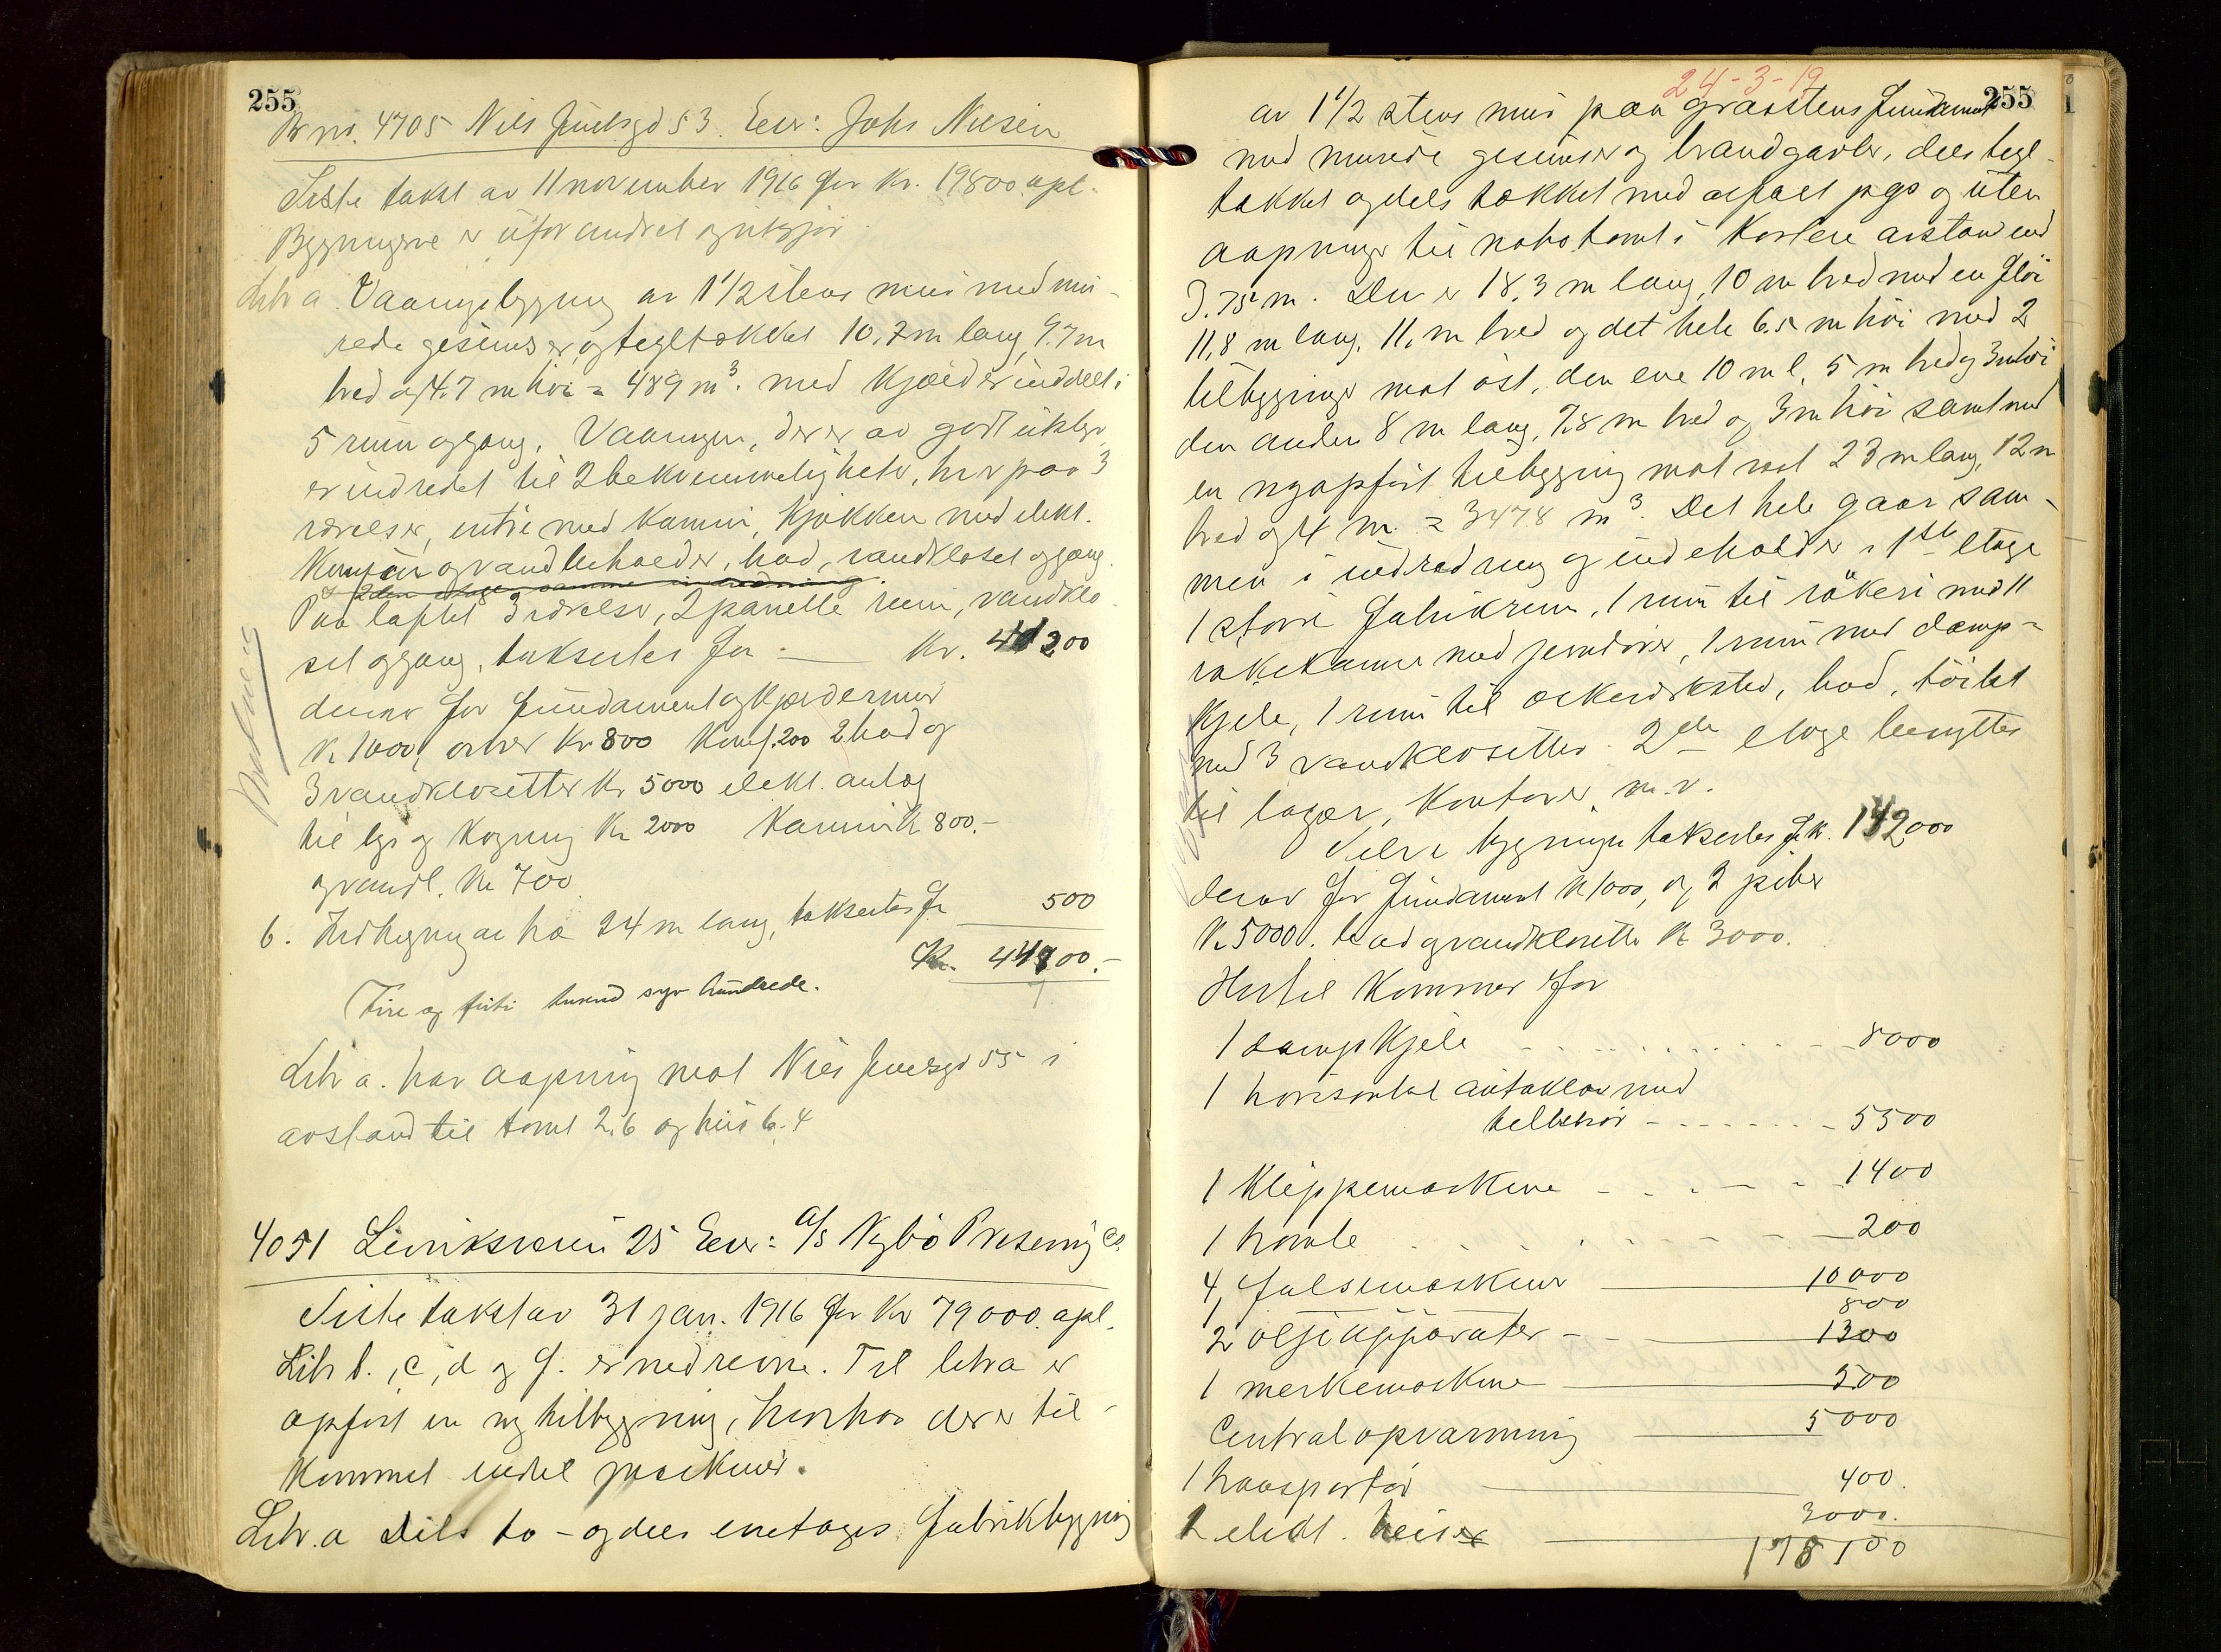 255
Br no. 4705 Nils Juelsgd 53. Eier: Johs Nilsen
Siste takst av 11 november 1916 for Kr. 19800. opl.
Bygningene er uforandret og utgjør
Litr a. Vaaningsbygning av 1 1/2 stens mur med mu-
rede gesimser og tegltækket 10,7 m lang, 9.7 m
bred og 4.7 m høi = 489 m³. med kjælder inddelt i
5 rum og gang. Vaaningen, der er av godt utstyr,
er indredet til 2 bekvemmeligheter, hver paa 3
værelser, entre med kamin, kjøkken med elekt.
Komfur og vandbeholder, bad, vandkloset og gang.
2den etage samme indredning.
Paa loftet 3 værelser, 2 panelte rum, vandklo-
set og gang, taksertes for — Kr. 44200
derav for fundament og kjældermur
Kr 1000, ovner Kr 800 Komf. 200 2 bad og
3 vandklosetter Kr 5000 elekt. anlæg
til lys og kogning Kr 2000 Kamin Kr 800.-
og vandl. Kr 700
b. Indhegning av træ 24 m lang, taksertes for 500
Kr. 44700.-
Fire og firti tusend syv hundrede.
Litr a. har aapning mot Nils Juelsgd 55 i
avstand til tomt 2.6 og hus 6.4
4051 Lerviksveien 25 Eier: A/S Nybø Preserving Co.
Siste takst av 31 jan. 1916 for Kr 79000. opl.
Litr b., c, d og f. er nedrevne. Til litra er
opført en ny tilbygning, hvorhos der er til-
kommet endel maskiner.
Litr. a Dels to- og dels enetages fabrikbygning
24-3-19
255
av 1 1/2 stens mur paa graastens fundament
med murede gesimser og brandgavler, dels tegl-
tækket og dels tækket med asfalt papp og uten
aapninger til nabotomt i kortere avstand end
3.75 m. Den er 18,3 m lang, 10 m bred med en fløi
11,8 m lang, 11, m bred og det hele 6.5 m høi med 2
tilbygninger mot øst, den ene 10 m l, 5 m bred og 3 m høi
den anden 8 m lang, 7,8 m bred og 3 m høi samt med
en nyopført tilbygning mot vest 23 m lang, 12 m
bred og 4 m = 3478 m³. Det hele gaar sam-
men i indredning og indeholder i 1ste etage
1 større fabrikrum, 1 rum til røkeri med 11
røkekamre med jerndører, 1 rum med damp-
kjele, 1 rum til verksted, bad, toilet
med 3 vandklosetter. 2den etage benyttes
til lager, kontorer m.v.
Selve bygningen taksertes f. k. 142000
derav for fundament Kr 1000, og 2 piber
Kr 5000. bad og vandklosetter Kr 3000.
Hertil kommer for
1 dampkjele 8000
1 horisontal autoklav med
tilbehør 5500
1 klippemaskine 1400
1 200
4 falsemaskiner 10000
800
2 oljeapparater 1300
1 merkemaskine 500
Centralopvarmning 5000
1 transportør 400.
1 elekt. heis 3000.
178100